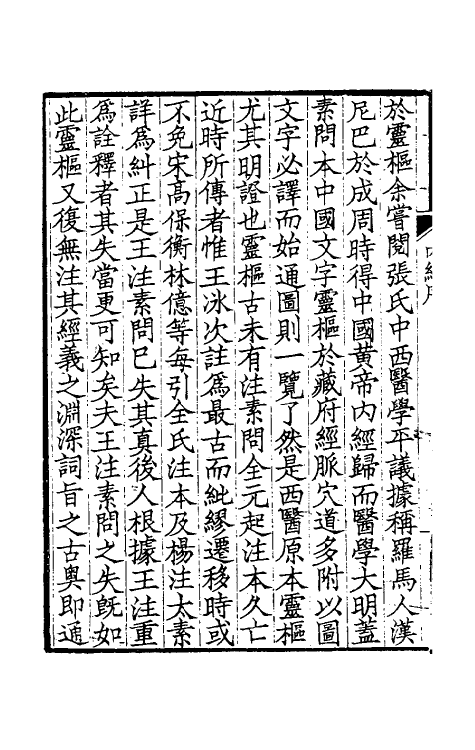 於靈樞余嘗閱張氏中西醫學平議據稱羅馬人漢
尼巴於成周時得中國黃帝內經歸而醫學大明蓋
素問本中國文字靈樞於藏府經脈穴道多附以圖
文字必譯而始通圖則一覽了然是西醫原本靈樞
尤其明證也靈樞古未有注素問全元起注本久亡
近時所傳者惟王冰次註爲最古而紕繆遷移時或
不免宋高保衡林億等每引全氏注本及楊注太素
詳爲糾正是王注素問已失其真後人根據王注重
爲詮釋者其失當更可知矣夫王注素問之失旣如
此靈樞又復無注其經義之淵深詞旨之古奧即通